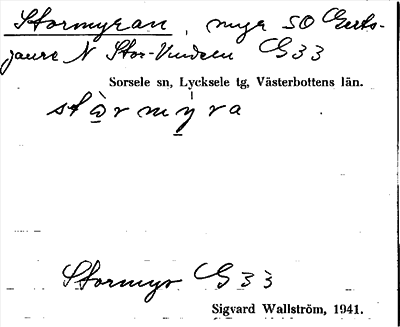 Stormyran, myr SO Gerts-
jaure N Stor-Vindeln G 33
Sorsele sn, Lycksele tg, Västerbottens län.
Stormyr G 33
Sigvard Wallström, 1941.